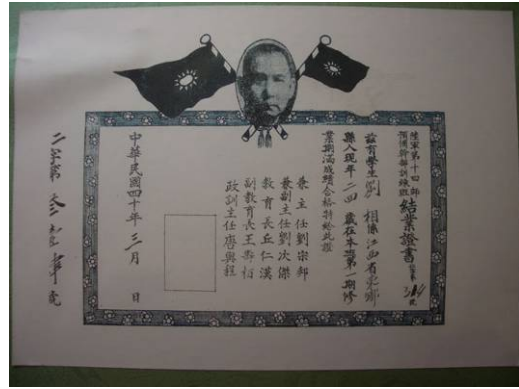 陸軍第十四師
預備幹部訓練班
結業證書
茲有學生劉相 係江西省
縣人現年二四歲在本班第一期修
業期滿成績合格特給此證
兼主任劉宗
兼副主任劉次傑
教育長丘仁漢
副教育長王
政副主任唐興程
中華民國四十年三月 日